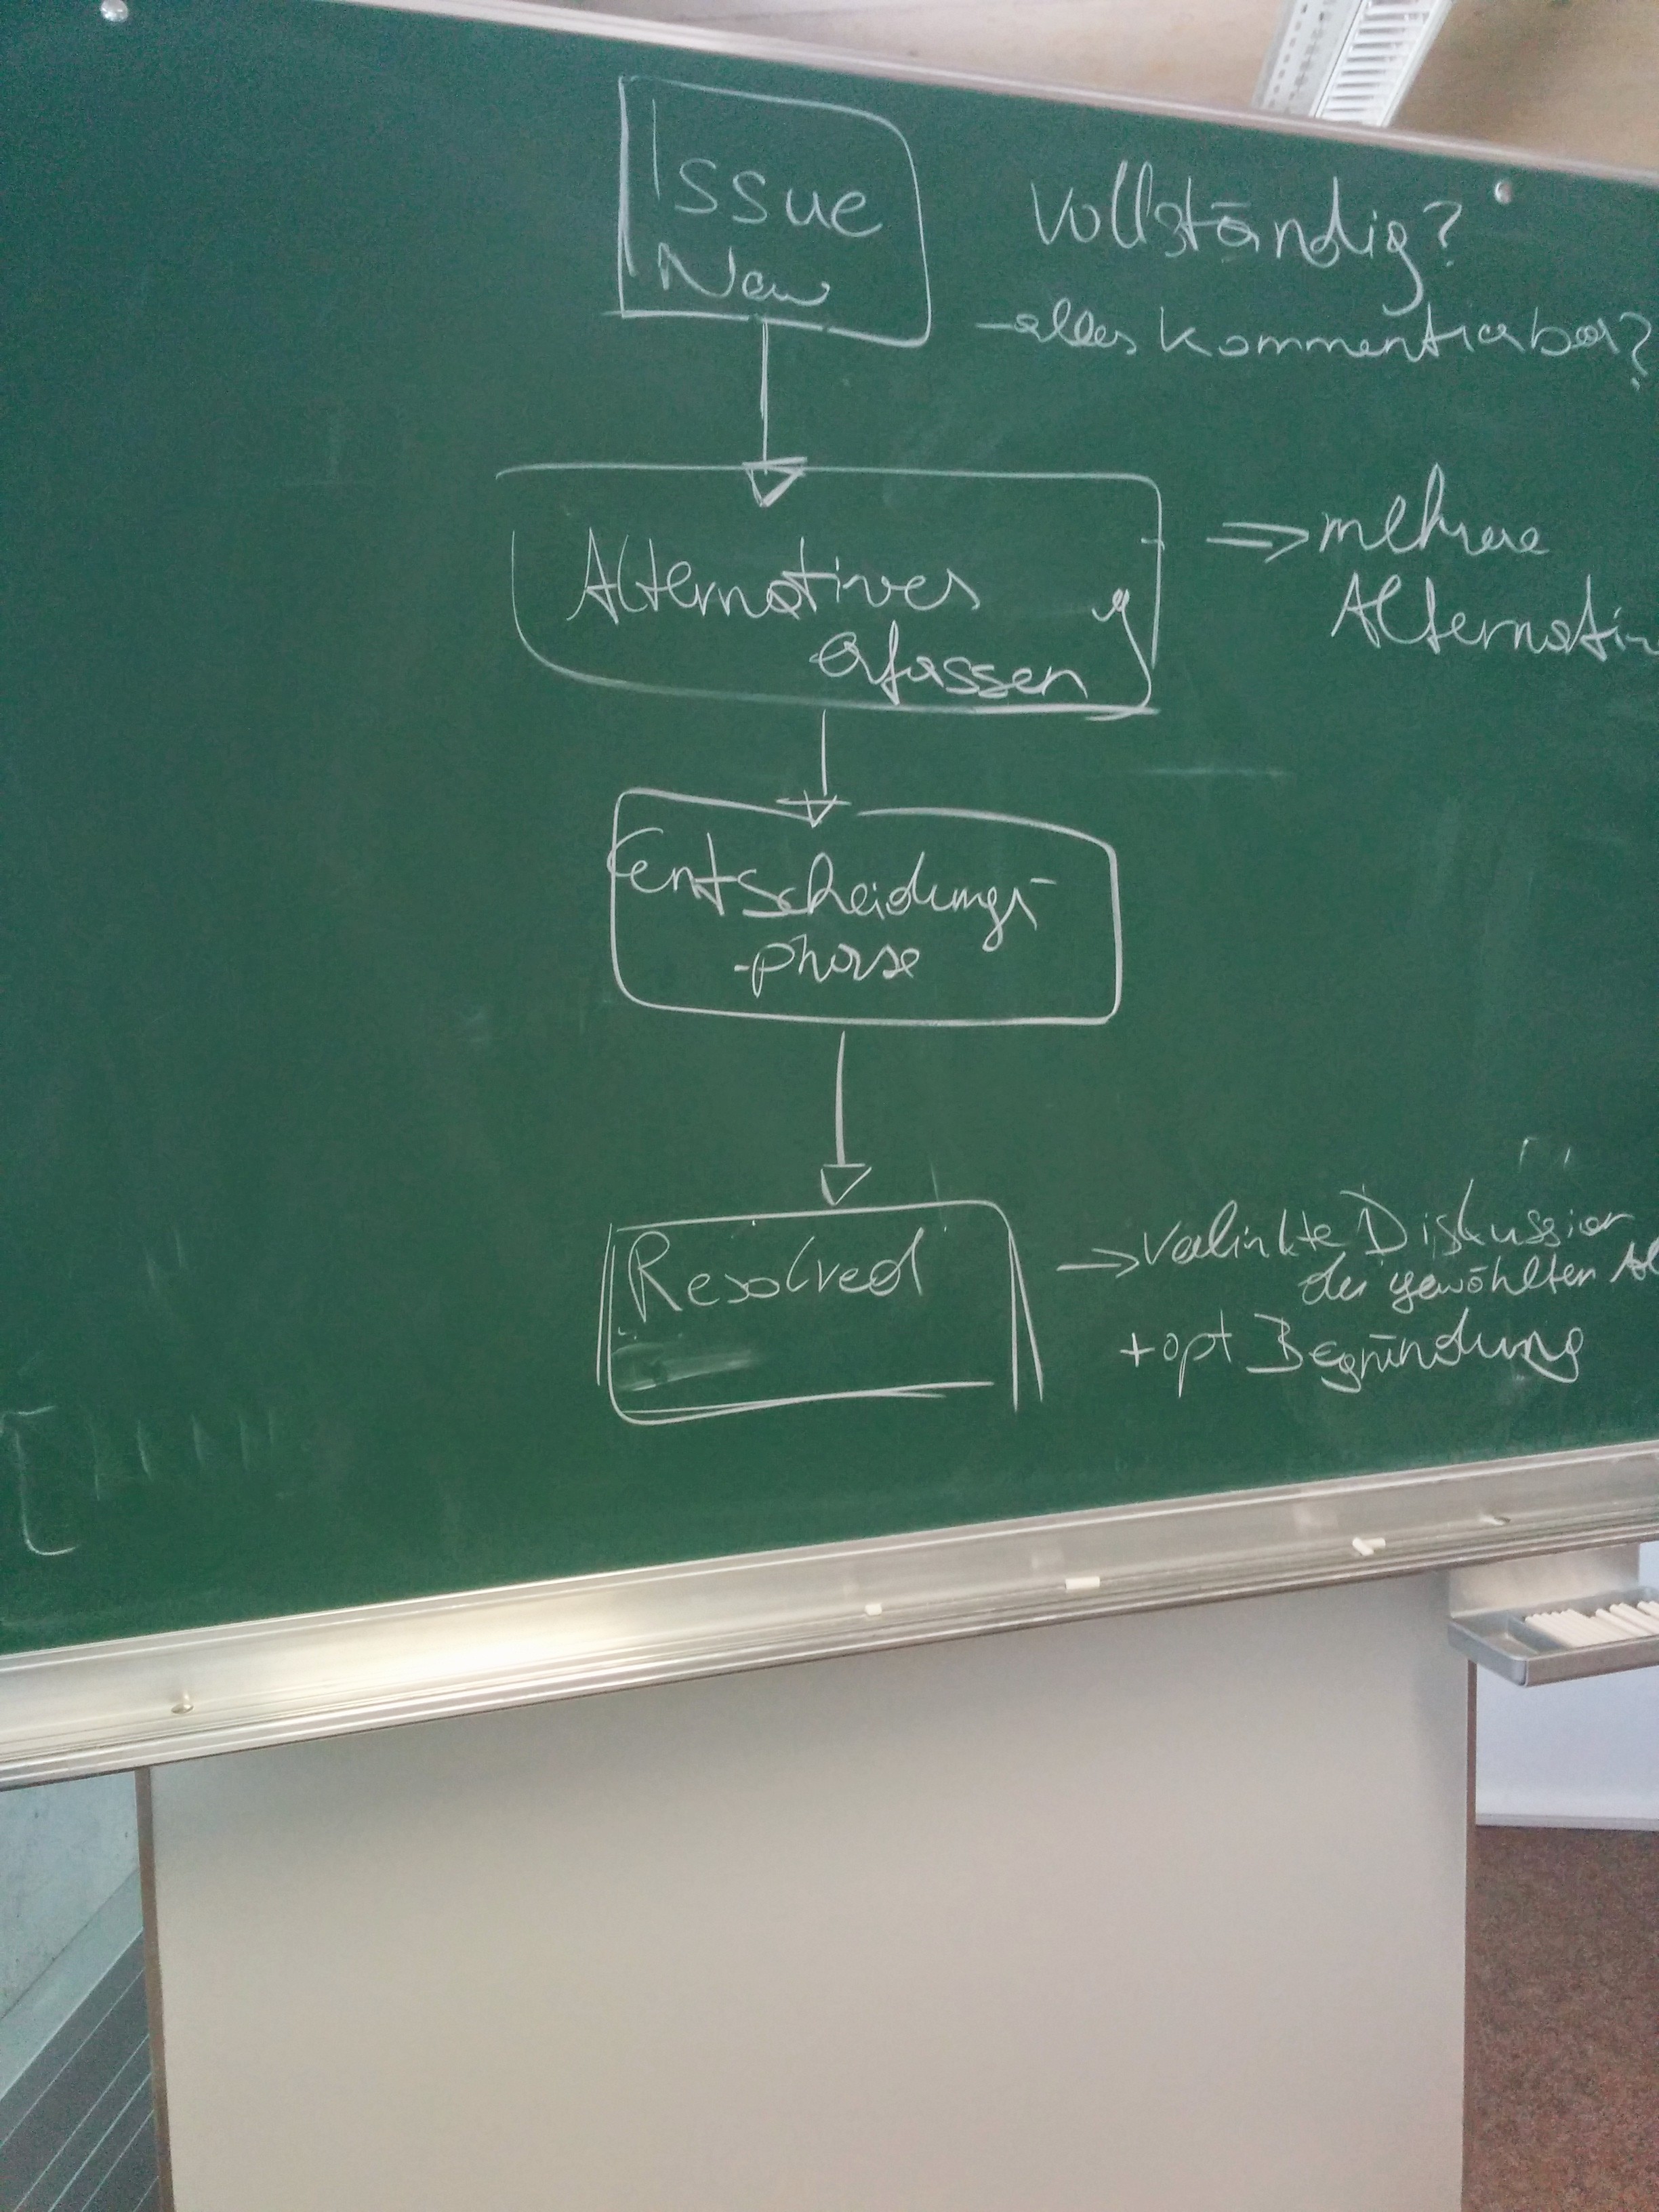 Issue
New
Vollständig?
- alles kommentierbar?
Alternatives
erfassen
⇒ mehrere
Alternativ
Entscheidungs-
-phase
Resolved
→ Verlinkte Diskussion
der gewählten Al
+ opt Begründung